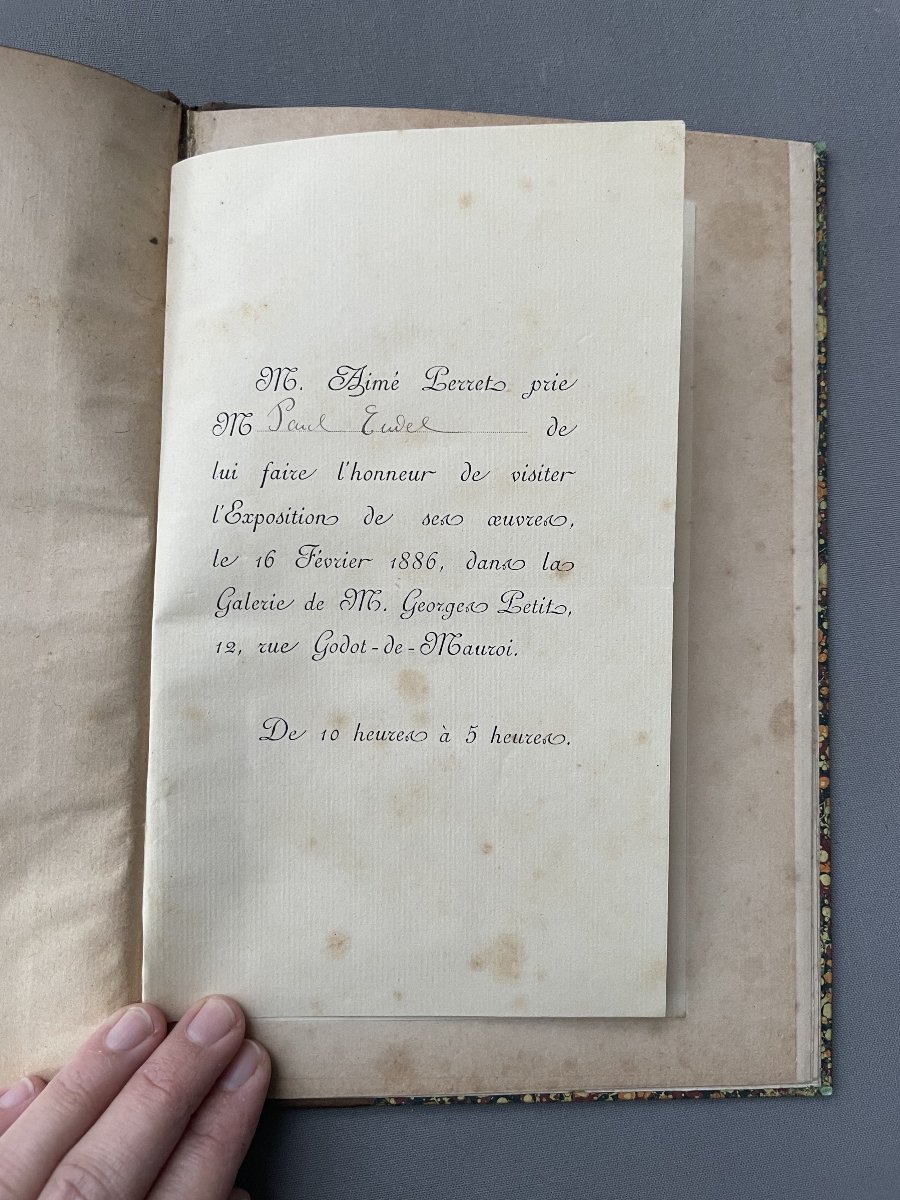 M. Aimé Perret prie
M Paul Eudel de
lui faire l'honneur de visiter
l'Exposition de ses œuvres,
le 16 Février 1886, dans la
Galerie de M. Georges Petit,
12, rue Godot-de-Mauroi.
De 10 heures à 5 heures.